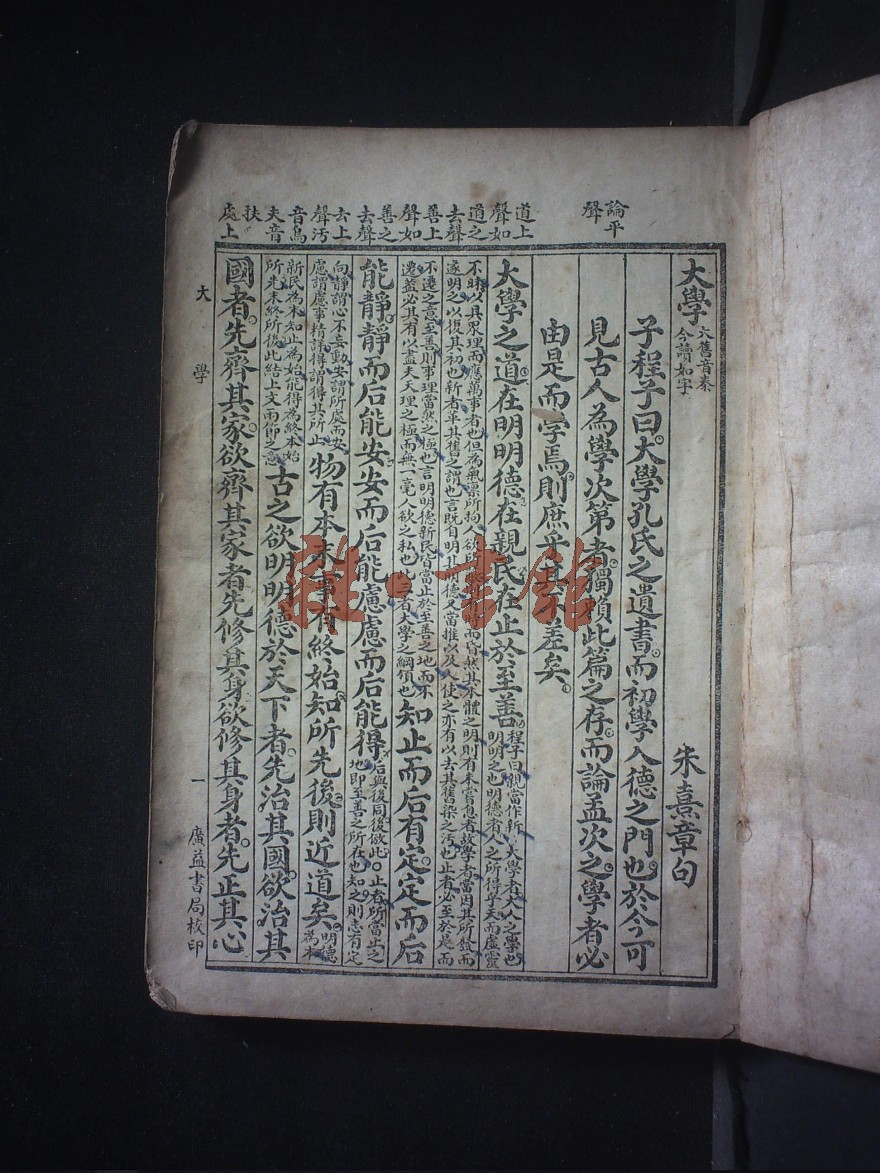 論平
聲
道上
聲如
道之
去聲
善上
聲如
善之
去聲
去上
聲汚
音烏
夫音
扶
處上
大學
大舊音泰
今讀如字
朱熹章句
子程子曰大學孔氏之遺書而初學入德之門也於今可
見古人為學次第者獨賴此篇之存而論孟次之學者必
由是而學焉則庶乎其不差矣
大學之道在明明德在親民在止於至善
程子曰親當作新○大學者大人之學也
明明之也明德者人之所得乎天而虛靈
不昧以具眾理而應萬事者也但為氣稟所拘人欲所蔽則有時而昏然其本體之明則有未嘗息者故學者當因其所發而
遂明之以復其初也新者革其舊之謂也言既自明其明德又當推以及人使之亦有以去其舊染之汚也止者必至於是而
不遷之意至善則事理當然之極也言明明德新民皆當止於至善之地而不
遷蓋必其有以盡夫天理之極而無一毫人欲之私也此三者大學之綱領也
知止而后有定定而后
能靜靜而后能安安而后能慮慮而后能得
后與後同後倣此○止者所當止之
地即至善之所在也知之則志有定
向靜謂心不妄動安謂所處而安
慮謂慮事精詳得謂得其所止
物有本末事有終始知所先後則近道矣
明德
為本
新民為末知止為始能得為終本始
所先末終所後此結上文兩節之意
古之欲明明德於天下者先治其國欲治其
國者先齊其家欲齊其家者先修其身欲修其身者先正其心
大學
一
廣益書局校印
雜·書館